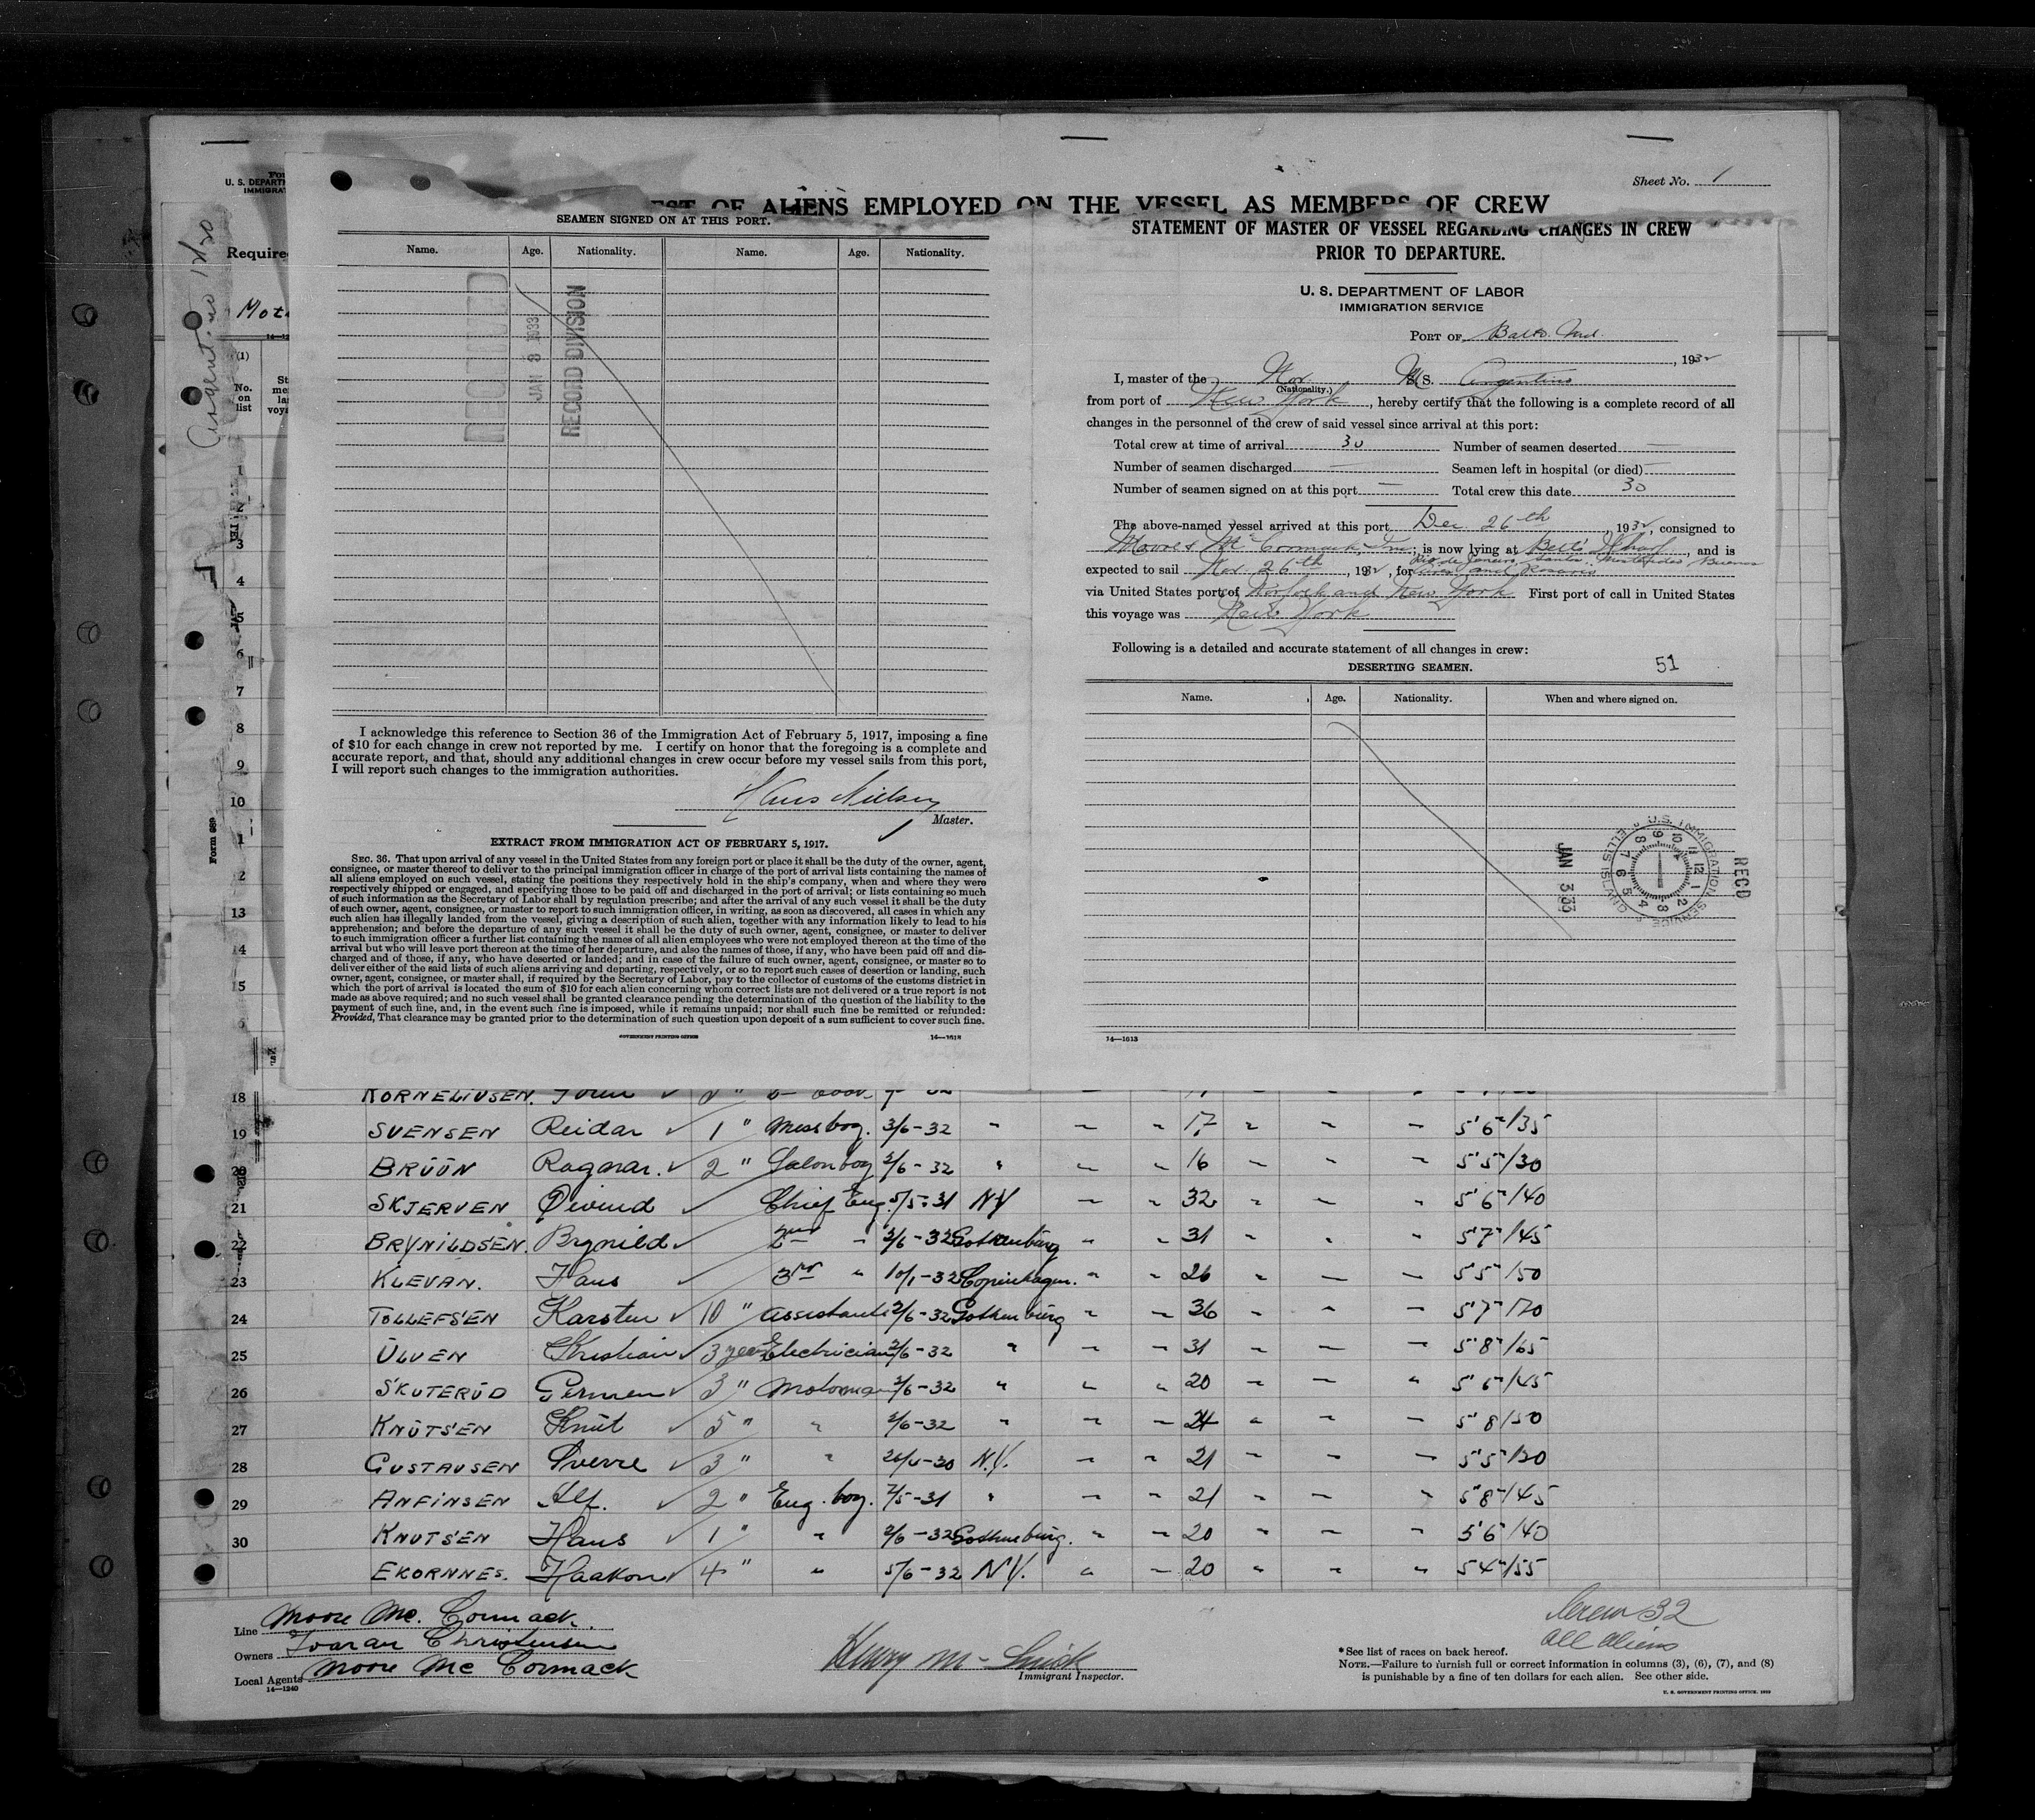 Sheet No. 1
U. S. DEPART
IMMIGRA
EST OF ALIENS EMPLOYED ON THE VESSEL AS MEMBERS OF CREW
Require
Mot
(1)
No.
on
list
SEAMEN SIGNED ON AT THIS PORT.
Name. Age. Nationality. Name. Age. Nationality.
RECEIVED
JAN 3 1933
RECORD DIVISION
I acknowledge this reference to Section 36 of the Immigration Act of February 5, 1917, imposing a fine
of $10 for each change in crew not reported by me. I certify on honor that the foregoing is a complete and
accurate report, and that, should any additional changes in crew occur before my vessel sails from this port,
I will report such changes to the immigration authorities.
Hans Nielsen
Master.
EXTRACT FROM IMMIGRATION ACT OF FEBRUARY 5, 1917.
SEC. 36. That upon arrival of any vessel in the United States from any foreign port or place it shall be the duty of the owner, agent,
consignee, or master thereof to deliver to the principal immigration officer in charge of the port of arrival lists containing the names of
all aliens employed on such vessel, stating the positions they respectively hold in the ship's company, when and where they were
respectively shipped or engaged, and specifying those to be paid off and discharged in the port of arrival; or lists containing so much
of such information as the Secretary of Labor shall by regulation prescribe; and after the arrival of any such vessel it shall be the duty
of such owner, agent, consignee, or master to report to such immigration officer, in writing, as soon as discovered, all cases in which any
such alien has illegally landed from the vessel, giving a description of such alien, together with any information likely to lead to his
apprehension; and before the departure of any such vessel it shall be the duty of such owner, agent, consignee, or master to deliver
to such immigration officer a further list containing the names of all alien employees who were not employed thereon at the time of the
arrival but who will leave port thereon at the time of her departure, and also the names of those, if any, who have been paid off and dis-
charged and of those, if any, who have deserted or landed; and in case of the failure of such owner, agent, consignee, or master so to
deliver either of the said lists of such aliens arriving and departing, respectively, or so to report such cases of desertion or landing, such
owner, agent, consignee, or master shall, if required by the Secretary of Labor, pay to the collector of customs of the customs district in
which the port of arrival is located the sum of $10 for each alien concerning whom correct lists are not delivered or a true report is not
made as above required; and no such vessel shall be granted clearance pending the determination of the question of the liability to the
payment of such fine, and, in the event such fine is imposed, while it remains unpaid; nor shall such fine be remitted or refunded:
Provided, That clearance may be granted prior to the determination of such question upon deposit of a sum sufficient to cover such fine.
GOVERNMENT PRINTING OFFICE 14—1613
STATEMENT OF MASTER OF VESSEL REGARDING CHANGES IN CREW
PRIOR TO DEPARTURE.
U. S. DEPARTMENT OF LABOR
IMMIGRATION SERVICE
PORT OF Balto. Md.
, 1932
I, master of the Nor. M.S. Argentino
(Nationality.)
from port of New York, hereby certify that the following is a complete record of all
changes in the personnel of the crew of said vessel since arrival at this port:
Total crew at time of arrival 30 Number of seamen deserted —
Number of seamen discharged — Seamen left in hospital (or died) —
Number of seamen signed on at this port — Total crew this date 30
The above-named vessel arrived at this port Dec. 26th, 1932, consigned to
Moore & McCormack, Inc., is now lying at Belt's Wharf, and is
expected to sail Nov. 26th, 1932, for Rio de Janeiro, Santos, Montevideo Buenos
Aires and Rosario
via United States port of Norfolk and New York First port of call in United States
this voyage was New York
Following is a detailed and accurate statement of all changes in crew:
DESERTING SEAMEN.
51
Name. Age. Nationality. When and where signed on.
U.S. IMMIGRATION SERVICE ELLIS ISLAND
RECD
JAN 3 33
14—1613
Form 689
1
2
3
4
5
6
7
8
9
10
1
2
13
14
15
18 KORNELIUSEN.
19 SVENSEN Reidar 1 " Messboy. 3/6-32 " 17 5'6" 135
20 BRÜÜN Ragnar. 2 " Salonboy 2/6-32 " 16 5'5" 130
21 SKJERVEN Øivind Chief Eng. 5/5-31 NY 32 5'6" 140
22 BRYNILDSEN. Brynild 2nd " 2/6-32 Gothenburg 31 5'7" 145
23 KLEVAN. Hans 3rd " 10/1-32 Copenhagen. 26 5'5" 150
24 TOLLEFSEN Karsten 10 " assistant 2/6-32 Gothenburg 36 5'7" 170
25 ÜLVEN Kristian 3 years Electrician 2/6-32 " 31 5'8" 165
26 SKUTERÜD 3 " Motorman 2/6-32 " 20 5'6" 145
27 KNÜTSEN Knüt 5 " " 2/6-32 " 24 5'8" 150
28 GUSTAVSEN Sverre 3 " " N.Y. 21 5'5" 130
29 ANFINSEN Alf. 2 " Eng. boy. 7/5-31 " 21 5'8" 145
30 KNUTSEN Hans 1 " " 2/6-32 Gothenburg. 20 5'6" 140
EKORNNES. Haakon 4 " " 5/6-32 NY. 20 5'4" 155
Line Moore Mc. Cormack.
Owners Ivaran Christensen
Local Agents Moore Mc Cormack
14—1240
Immigrant Inspector.
Crew 32
All aliens
*See list of races on back hereof.
NOTE.—Failure to furnish full or correct information in columns (3), (6), (7), and (8)
is punishable by a fine of ten dollars for each alien. See other side.
U. S. GOVERNMENT PRINTING OFFICE